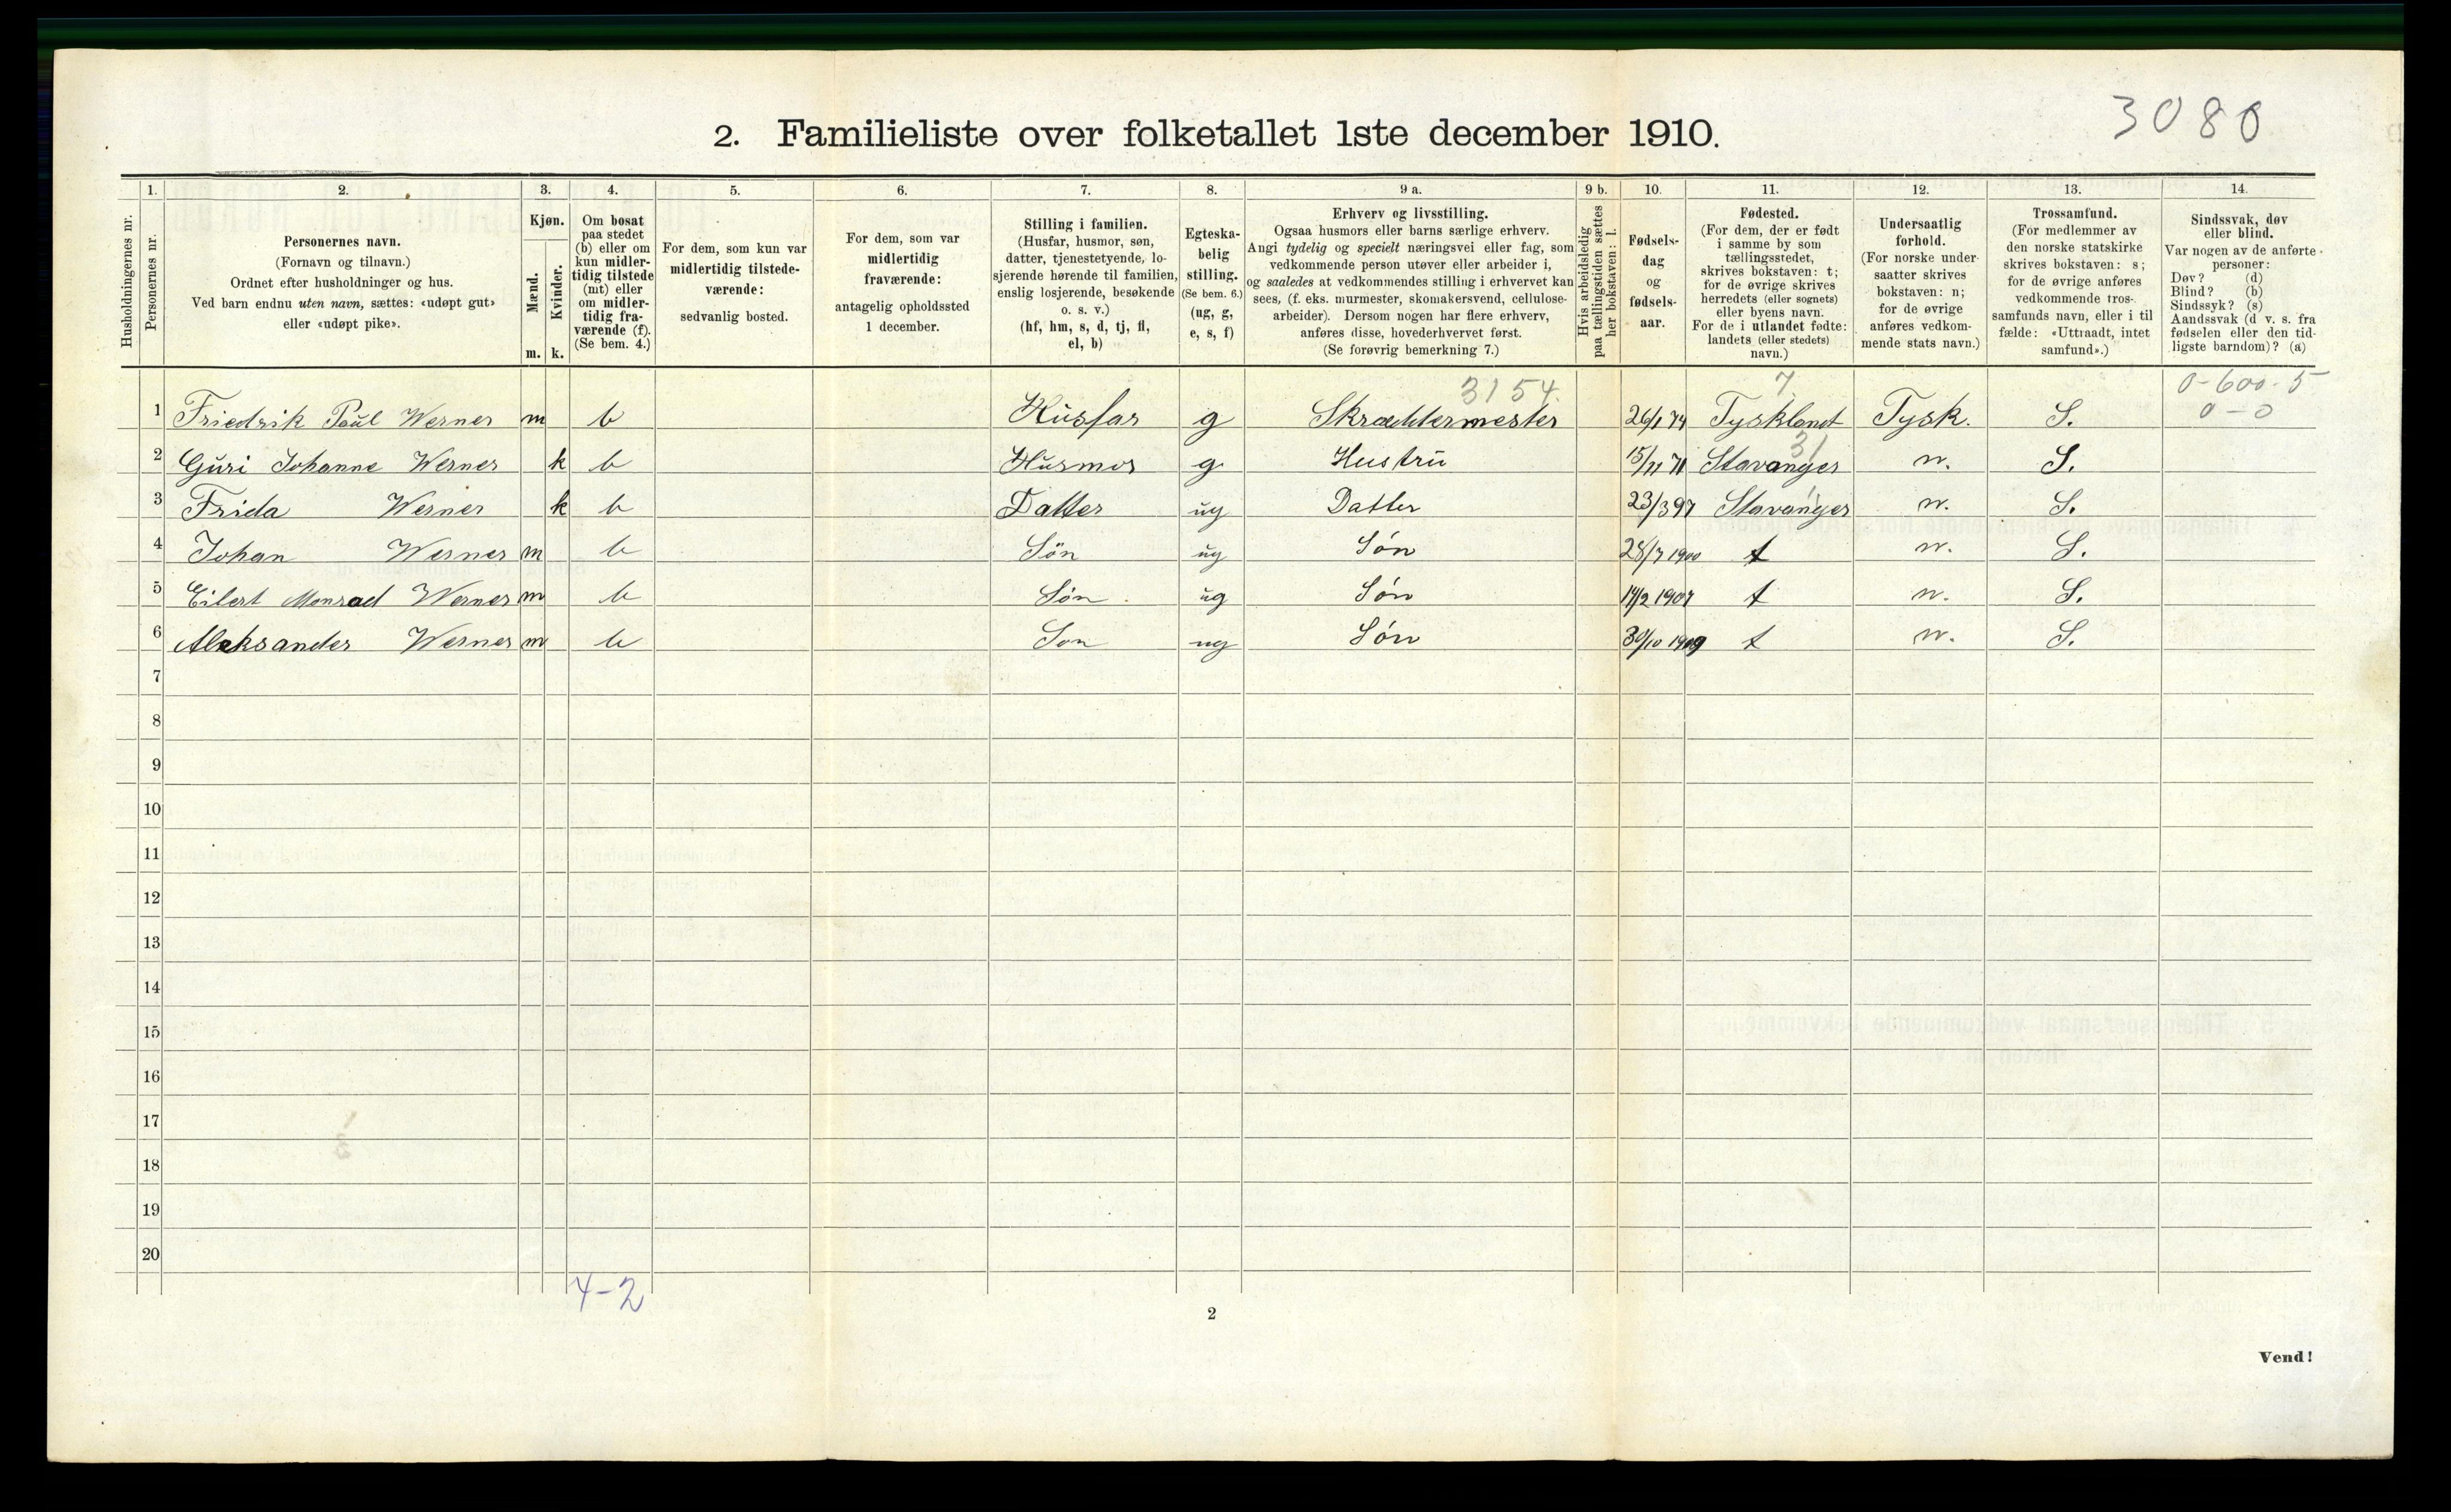 3080
2. Familieliste over folketallet 1ste december 1910.
1. 2. 3. 4. 5. 6. 7. 8. 9 a. 9 b. 10. 11. 12. 13. 14.
Husholdningernes nr.
Personernes nr.
Personernes navn.
(Fornavn og tilnavn.)
Ordnet efter husholdninger og hus.
Ved barn endnu uten navn, sættes: «udøpt gut»
eller «udøpt pike».
Kjøn.
Mænd.
Kvinder.
m. k.
Om bosat
paa stedet
(b) eller om
kun midler-
tidig tilstede
(mt) eller
om midler-
tidig fra-
værende (f).
(Se bem. 4.)
For dem, som kun var
midlertidig tilstede-
værende:
sedvanlig bosted.
For dem, som var
midlertidig
fraværende:
antagelig opholdssted
1 december.
Stilling i familien.
(Husfar, husmor, søn,
datter, tjenestetyende, lo-
sjerende hørende til familien,
enslig losjerende, besøkende
o. s. v.)
(hf, hm, s, d, tj, fl,
el, b)
Egteska-
belig
stilling.
(Se bem. 6.)
(ug, g,
e, s, f)
Erhverv og livsstilling.
Ogsaa husmors eller barns særlige erhverv.
Angi tydelig og specielt næringsvei eller fag, som
vedkommende person utøver eller arbeider i,
og saaledes at vedkommendes stilling i erhvervet kan
sees, (f. eks. murmester, skomakersvend, cellulose-
arbeider). Dersom nogen har flere erhverv,
anføres disse, hovederhvervet først.
(Se forøvrig bemerkning 7.)
Hvis arbeidsledig
paa tællingstiden sættes
her bokstaven: l.
Fødsels-
dag
og
fødsels-
aar.
Fødested.
(For dem, der er født
i samme by som
tællingsstedet,
skrives bokstaven: t;
for de øvrige skrives
herredets (eller sognets)
eller byens navn.
For de i utlandet fødte:
landets (eller stedets)
navn.)
Undersaatlig
forhold.
(For norske under-
saatter skrives
bokstaven: n;
for de øvrige
anføres vedkom-
mende stats navn.)
Trossamfund.
(For medlemmer av
den norske statskirke
skrives bokstaven: s;
for de øvrige anføres
vedkommende tros-
samfunds navn, eller i til
fælde: «Uttraadt, intet
samfund».)
Sindssvak, døv
eller blind.
Var nogen av de anførte
personer:
Døv? (d)
Blind? (b)
Sindssyk? (s)
Aandssvak (d v. s. fra
fødselen eller den tid-
ligste barndom)? (a)
3154. 7 0-600-5
1 Friedrik Paul Werner m b Husfar g Skræddermester 26/1 74 Tyskland Tysk. S. 0-0
31
2 Guri Johanne Werner k b Husmor g Hustru 15/11 71 Stavanger n. S.
3 Frida Werner k b Datter ug Datter 23/3 97 Stavanger n. S.
4 Johan Werner m b Søn ug Søn 28/7 1900 t n. S.
5 Eilert Monrad Werner m b Søn ug Søn 14/2 1907 t n. S.
6 Aleksander Werner m b Søn ug Søn 30/10 1909 t n. S.
7
8
9
10
11
12
13
14
15
16
17
18
19
20
4-2
2
Vend!